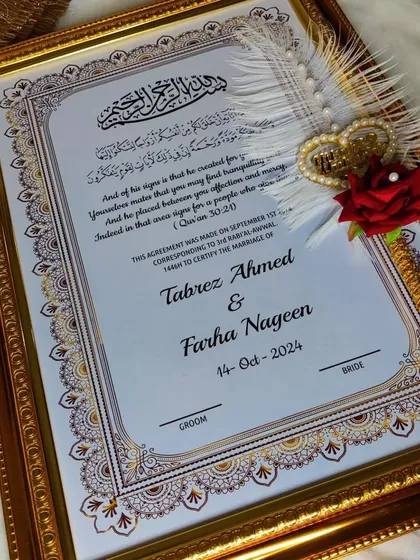 بسم الله الرحمن الرحيم
أَنْ خَلَقَ لَكُمْ مِنْ أَنْفُسِكُمْ أَزْوَاجًا لِتَسْكُنُوا إِلَيْهَا
مَوَدَّةً وَرَحْمَةً إِنَّ فِي ذَٰلِكَ لَآيَاتٍ لِقَوْمٍ يَتَفَكَّرُونَ
And of his signs is that he created for
Yourselves mates that you may find tranquility
And he placed between you affection and mercy,
Indeed in that area signs for a people who
( Qur'an 30:21)
THIS AGREEMENT WAS MADE ON SEPTEMBER 1ST
CORRESPONDING TO 3rd RABI'AL-AWWAL.
1446H TO CERTIFY THE MARRIAGE OF
Tabrez Ahmed
&
Farha Nageen
14- Oct - 2024
GROOM
BRIDE